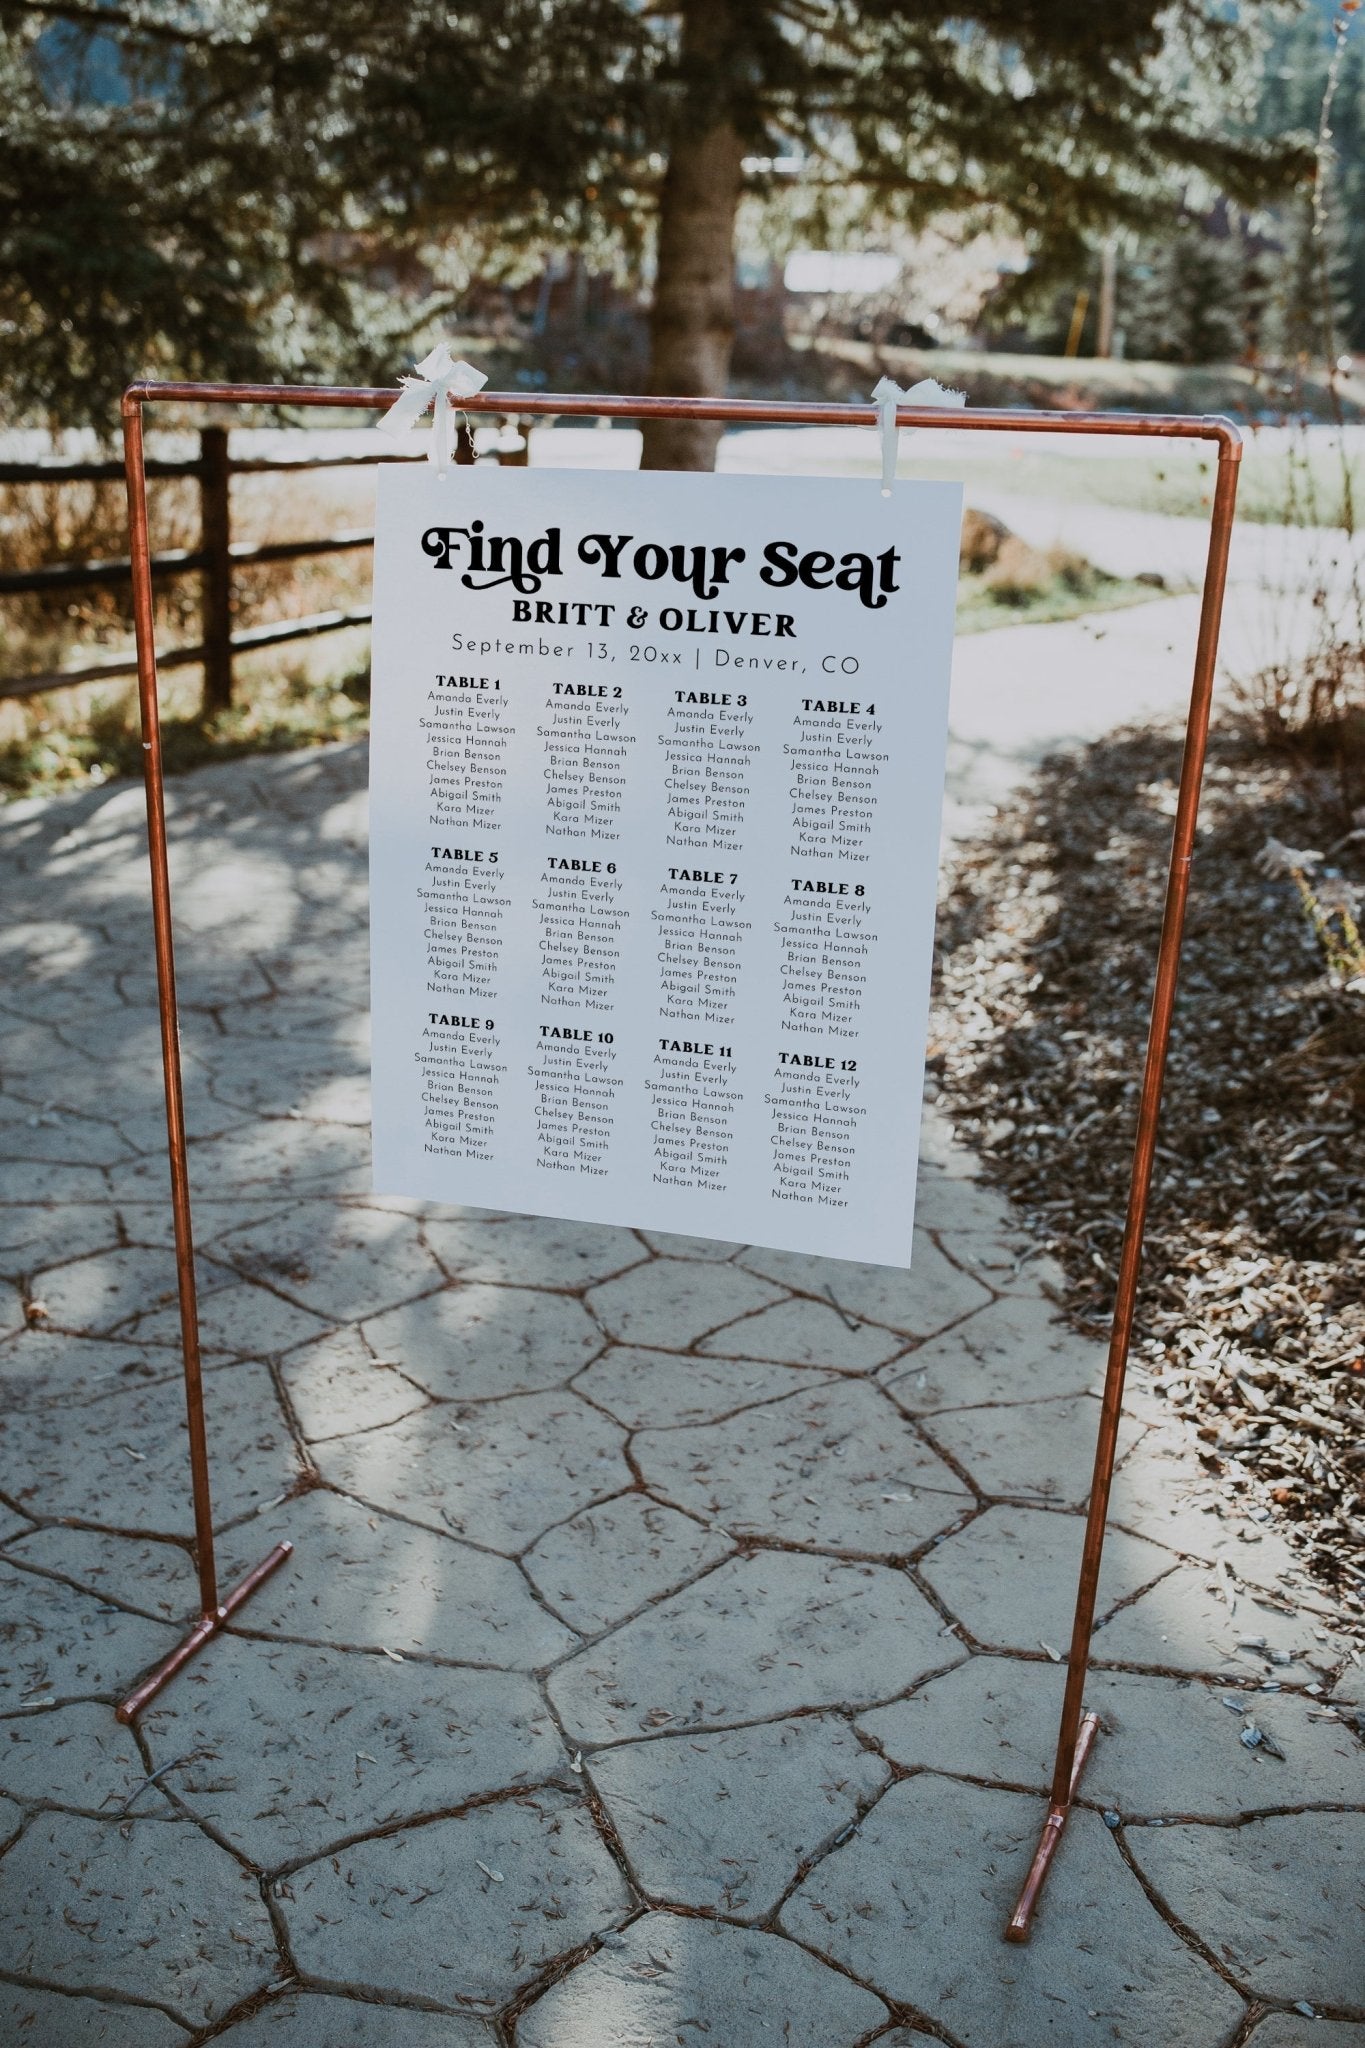 Find Your Seat
BRITT & OLIVER
September 13, 20xx | Denver, CO
TABLE 1
Amanda Everly
Justin Everly
Samantha Lawson
Jessica Hannah
Brian Benson
Chelsey Benson
James Preston
Abigail Smith
Kara Mizer
Nathan Mizer
TABLE 2
Amanda Everly
Justin Everly
Samantha Lawson
Jessica Hannah
Brian Benson
Chelsey Benson
James Preston
Abigail Smith
Kara Mizer
Nathan Mizer
TABLE 3
Amanda Everly
Justin Everly
Samantha Lawson
Jessica Hannah
Brian Benson
Chelsey Benson
James Preston
Abigail Smith
Kara Mizer
Nathan Mizer
TABLE 4
Amanda Everly
Justin Everly
Samantha Lawson
Jessica Hannah
Brian Benson
Chelsey Benson
James Preston
Abigail Smith
Kara Mizer
Nathan Mizer
TABLE 5
Amanda Everly
Justin Everly
Samantha Lawson
Jessica Hannah
Brian Benson
Chelsey Benson
James Preston
Abigail Smith
Kara Mizer
Nathan Mizer
TABLE 6
Amanda Everly
Justin Everly
Samantha Lawson
Jessica Hannah
Brian Benson
Chelsey Benson
James Preston
Abigail Smith
Kara Mizer
Nathan Mizer
TABLE 7
Amanda Everly
Justin Everly
Samantha Lawson
Jessica Hannah
Brian Benson
Chelsey Benson
James Preston
Abigail Smith
Kara Mizer
Nathan Mizer
TABLE 8
Amanda Everly
Justin Everly
Samantha Lawson
Jessica Hannah
Brian Benson
Chelsey Benson
James Preston
Abigail Smith
Kara Mizer
Nathan Mizer
TABLE 9
Amanda Everly
Justin Everly
Samantha Lawson
Jessica Hannah
Brian Benson
Chelsey Benson
James Preston
Abigail Smith
Kara Mizer
Nathan Mizer
TABLE 10
Amanda Everly
Justin Everly
Samantha Lawson
Jessica Hannah
Brian Benson
Chelsey Benson
James Preston
Abigail Smith
Kara Mizer
Nathan Mizer
TABLE 11
Amanda Everly
Justin Everly
Samantha Lawson
Jessica Hannah
Brian Benson
Chelsey Benson
James Preston
Abigail Smith
Kara Mizer
Nathan Mizer
TABLE 12
Amanda Everly
Justin Everly
Samantha Lawson
Jessica Hannah
Brian Benson
Chelsey Benson
James Preston
Abigail Smith
Kara Mizer
Nathan Mizer